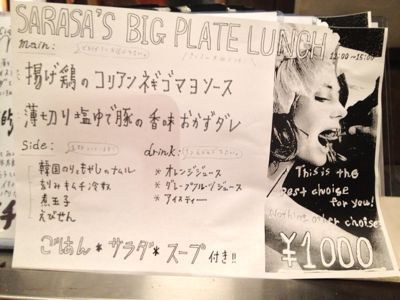 SARASA'S BIG PLATE LUNCH
11:00~15:00
main:
揚げ鶏のコリアンネギゴマヨソース
薄切り塩ゆで豚の香味おかずダレ
side:
韓国のりともやしのナムル
刻みキムチ冷奴
煮玉子
えびせん
drink:
* オレンジジュース
* グレープフルーツジュース
* アイスティー
ごはん * サラダ * スープ 付き!!
This is the
best choise
for you!
Nothing other choise
¥1000